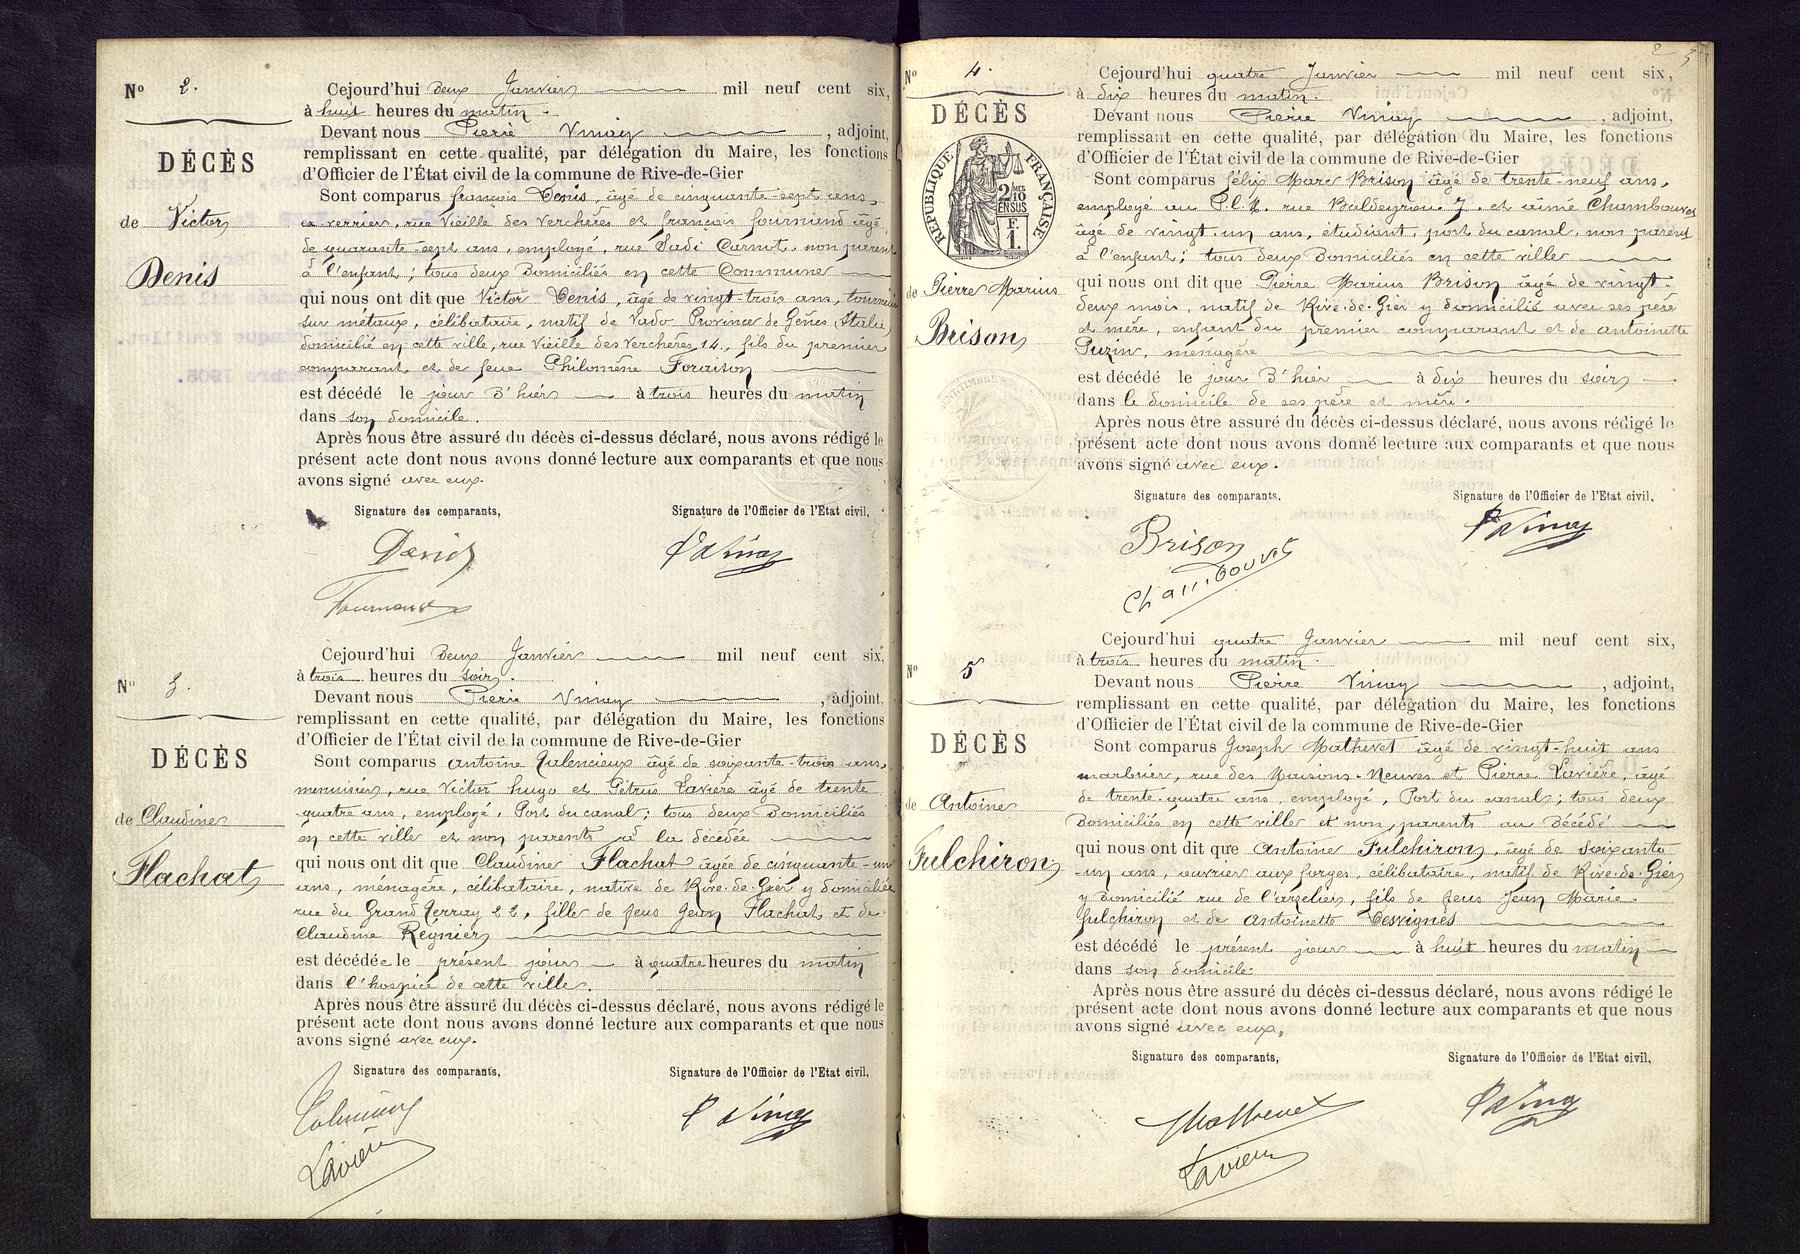 Nº 2.
DÉCÈS
de Victor
Denis
Cejourd'hui deux Janvier mil neuf cent six,
à huit heures du matin.
Devant nous Pierre Vinay, adjoint,
remplissant en cette qualité, par délégation du Maire, les fonctions
d'Officier de l'État civil de la commune de Rive-de-Gier
Sont comparus françois Denis, âgé de cinquante-sept ans,
ex verrier, rue Vieille des Verchères et françois fournand âgé
de quarante-sept ans, employé, rue Sadi Carnot, non parent
à l'enfant; tous deux domiciliés en cette Commune
qui nous ont dit que Victor Denis, âgé de vingt-trois ans, tourneur
sur métaux, célibataire, natif de Vado Province de Gênes Italie,
domicilié en cette ville, rue Vieille des Verchères 14, fils du premier
comparant et de feue Philomène Foraison
est décédé le jour d'hier à trois heures du matin
dans son domicile.
Après nous être assuré du décès ci-dessus déclaré, nous avons rédigé le
présent acte dont nous avons donné lecture aux comparants et que nous
avons signé avec eux.
Signature des comparants, Signature de l'Officier de l'Etat civil,
P Vinay
Nº 3.
DÉCÈS
de Claudine
Flachat
Cejourd'hui deux Janvier mil neuf cent six,
à trois heures du soir.
Devant nous Pierre Vinay, adjoint,
remplissant en cette qualité, par délégation du Maire, les fonctions
d'Officier de l'État civil de la commune de Rive-de-Gier
Sont comparus antoine Valencieux âgé de soixante-trois ans,
menuisier, rue Victor hugo et Pétrus Lavière âgé de trente
quatre ans, employé, Port du canal; tous deux domiciliés
en cette ville et non parents à la décédée
qui nous ont dit que Claudine Flachat âgée de cinquante-un
ans, ménagère, célibataire, native de Rive-de-Gier y domiciliée
rue du Grand Verray 22, fille de feus Jean Flachat et de
Claudine Regnier
est décédée le présent jour à quatre heures du matin
dans l'hospice de cette ville.
Après nous être assuré du décès ci-dessus déclaré, nous avons rédigé le
présent acte dont nous avons donné lecture aux comparants et que nous
avons signé avec eux.
Signature des comparants, Signature de l'Officier de l'Etat civil,
P Vinay
Lavière
2
3
Nº 4.
DÉCÈS
RÉPUBLIQUE FRANÇAISE
2/10 MES
EN SUS
F.
1.
de Pierre Marius
Brison
Cejourd'hui quatre Janvier mil neuf cent six,
à dix heures du matin.
Devant nous Pierre Vinay, adjoint,
remplissant en cette qualité, par délégation du Maire, les fonctions
d'Officier de l'État civil de la commune de Rive-de-Gier
Sont comparus félix Marc Brison âgé de trente-neuf ans,
employé au P.L.M. rue Baldeyrou 7, et aimé Chambouvet
âgé de vingt-un ans, étudiant, port du canal, non parent
à l'enfant; tous deux domiciliés en cette ville
qui nous ont dit que Pierre Marius Brison âgé de vingt-
deux mois, natif de Rive-de-Gier y domicilié avec ses père
et mère, enfant du premier comparant et de antoinette
Puzin, ménagère
est décédé le jour d'hier à dix heures du soir
dans le domicile de ses père et mère.
Après nous être assuré du décès ci-dessus déclaré, nous avons rédigé le
présent acte dont nous avons donné lecture aux comparants et que nous
avons signé avec eux.
Signature des comparants, Signature de l'Officier de l'Etat civil,
Brison P Vinay
Chambouvet
Nº 5
DÉCÈS
de Antoine
Fulchiron
Cejourd'hui quatre Janvier mil neuf cent six,
à trois heures du matin.
Devant nous Pierre Vinay, adjoint,
remplissant en cette qualité, par délégation du Maire, les fonctions
d'Officier de l'État civil de la commune de Rive-de-Gier
Sont comparus Joseph Mathevet âgé de vingt-huit ans
marbrier, rue des Maisons-Neuves et Pierre Lavière, âgé
de trente-quatre ans, employé, Port du canal; tous deux
domiciliés en cette ville et non parents au décédé
qui nous ont dit que Antoine Fulchiron, âgé de soixante
-un ans, ouvrier aux forges, célibataire, natif de Rive-de-Gier
y domicilié rue de l'arzelier, fils de feus Jean Marie
fulchiron et de antoinette Desvignes
est décédé le présent jour à huit heures du matin
dans son domicile.
Après nous être assuré du décès ci-dessus déclaré, nous avons rédigé le
présent acte dont nous avons donné lecture aux comparants et que nous
avons signé avec eux.
Signature des comparants, Signature de l'Officier de l'Etat civil,
Mathevet P Vinay
Lavière